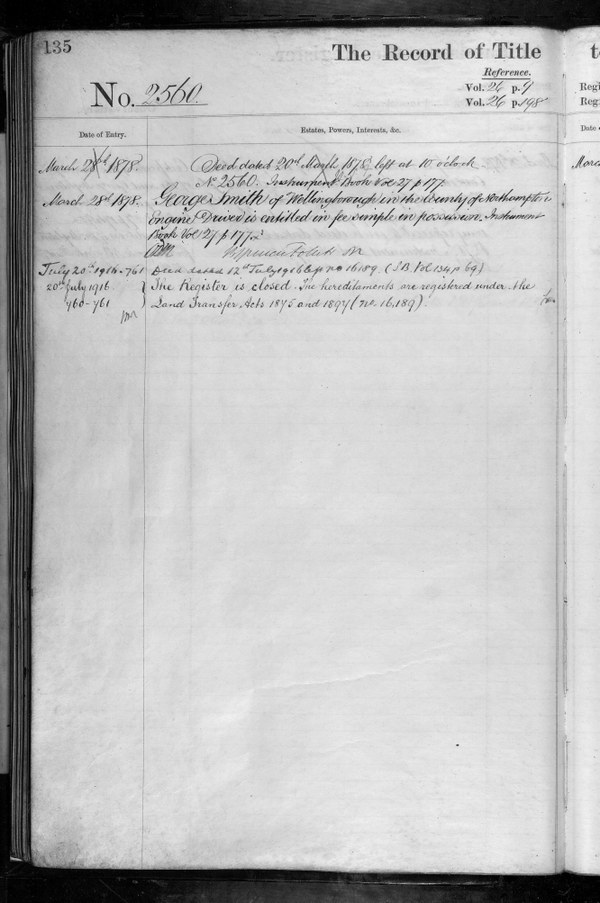 135
The Record of Title
Reference.
No. 2560.
Vol. 26 p. 9
Vol. 26 p. 198
Date of Entry.
Estates, Powers, Interests, &c.
March 28th 1878.
Deed dated 20th March 1878 left at 10 o'clock
No 2560. Instrument Book Vol 27 p 177
March 28th 1878.
George Smith of Wellingborough in the County of Northampton
Engine Driver is entitled in fee simple in possession. Instrument
Book Vol 27 p 177.
July 20th 1916-761
Deed dated 12th July 1916 no 16189. (I.B. Vol 134 p 69)
20th July 1916
The Register is closed. The hereditaments are registered under the
760-761
Land Transfer Acts 1875 and 1897 (no. 16,189).
t
Regi
Reg
Date
Marc